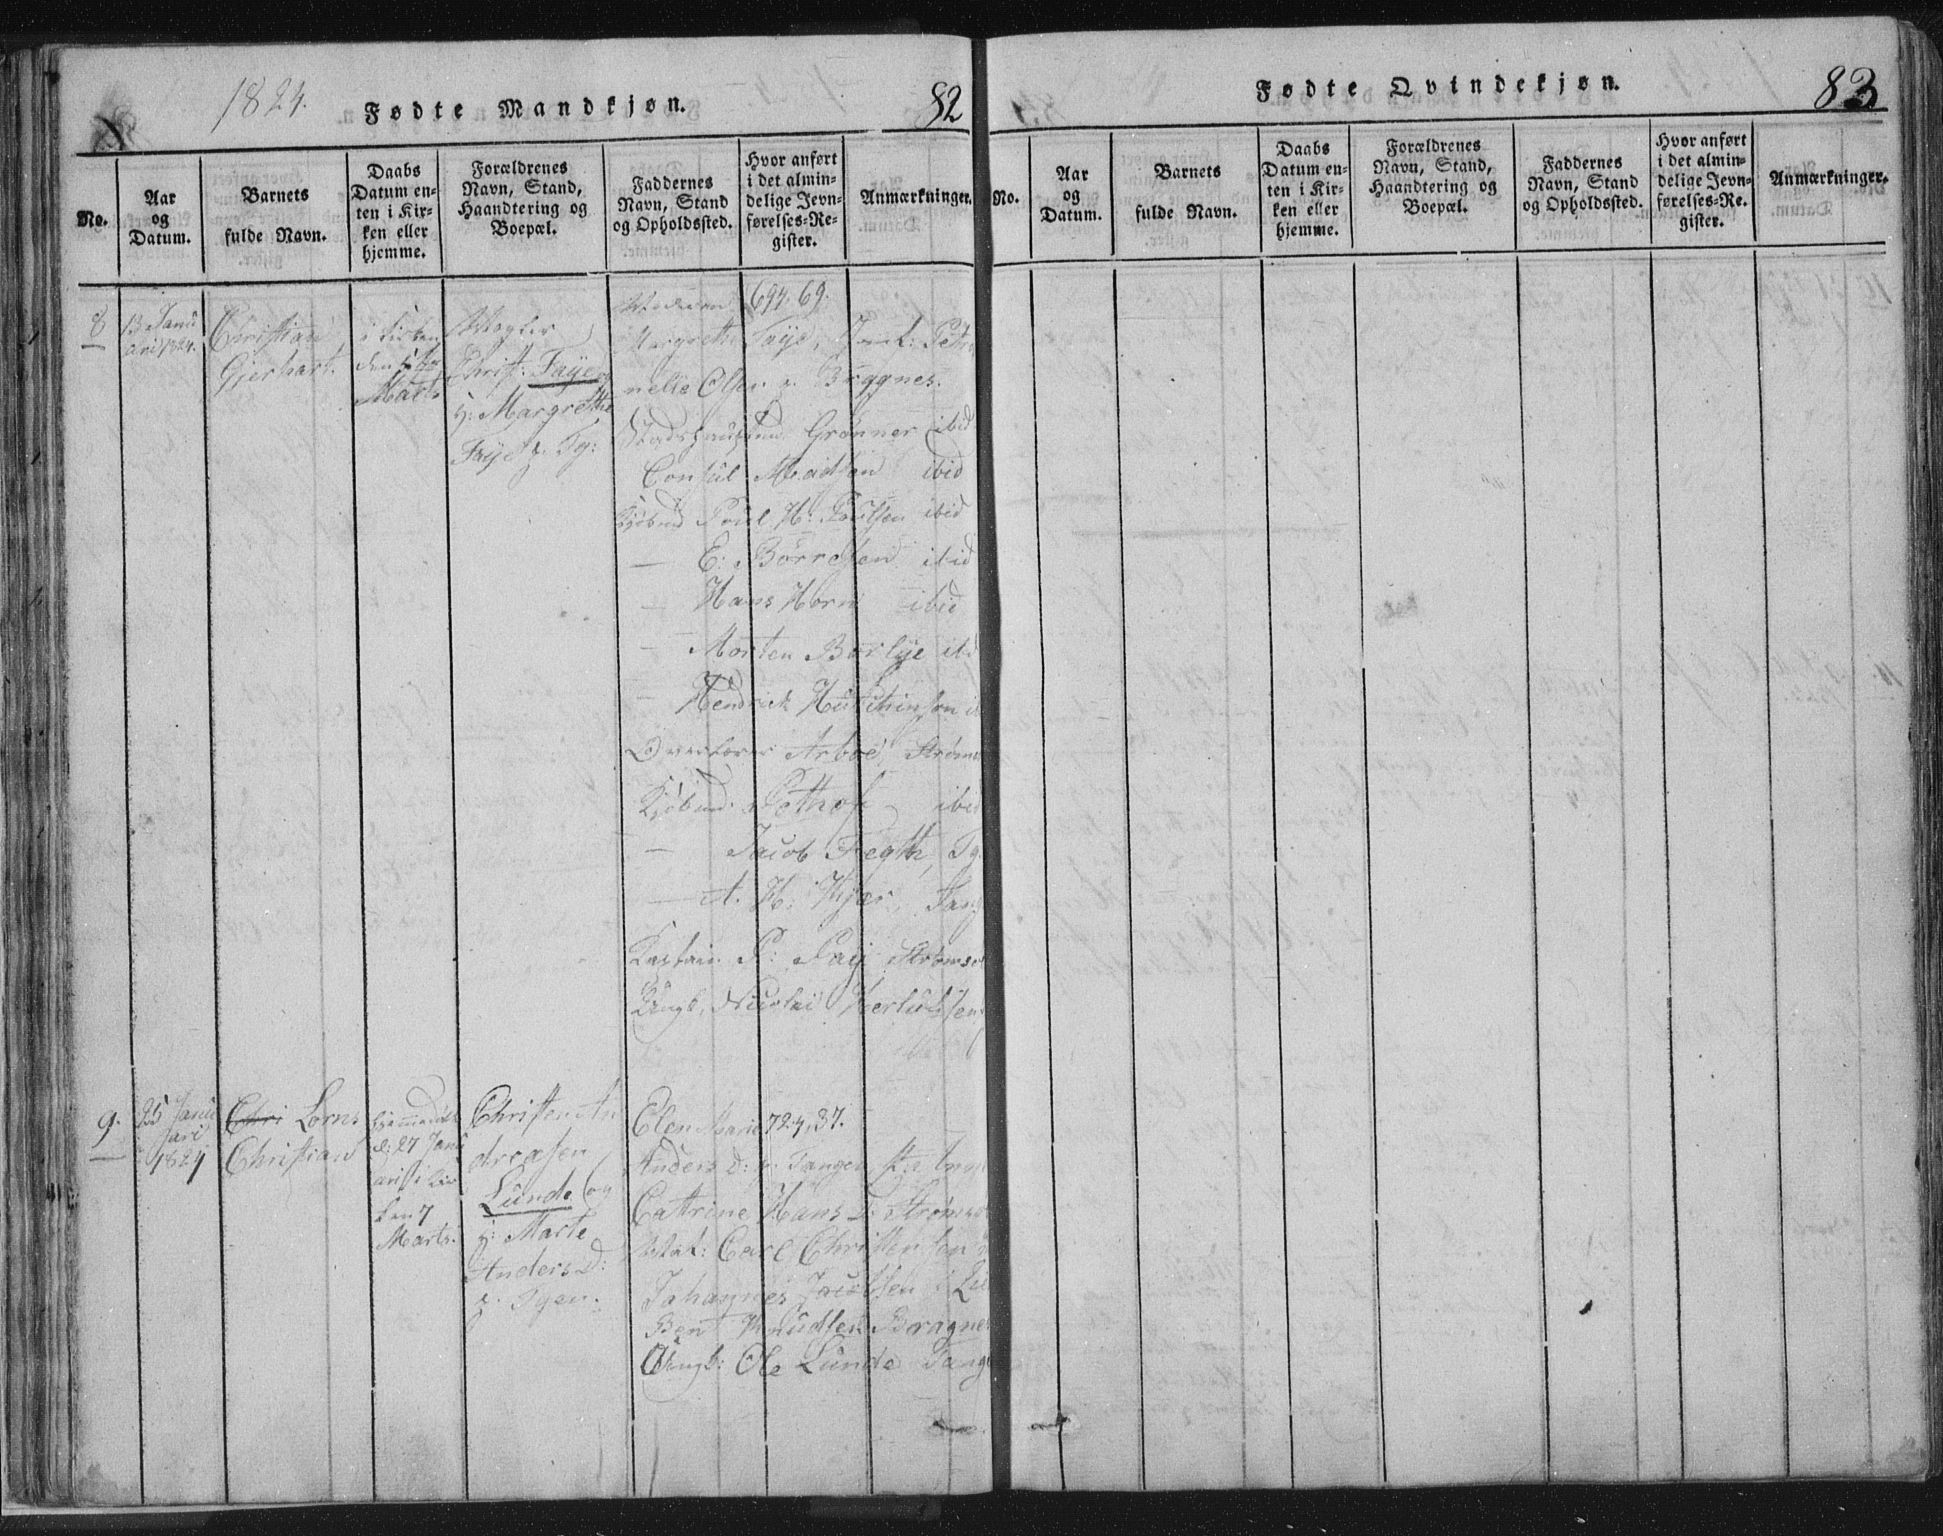 1824.
Fødte Mandkjøn.
82
No.
Aar
og
Datum.
Barnets
fulde Navn.
Daabs
Datum en-
ten i Kir-
ken eller
hjemme.
Forældrenes
Navn, Stand,
Haandtering og
Boepæl.
Faddernes
Navn, Stand
og Opholdssted.
Hvor anført
i det almin-
delige Jevn-
førelses-Re-
gister.
Anmærkninger.
8
13 Janu
ari 1824.
Christian
Gjerhart.
i Kirken
den
Marts
Mægler
Christ: Faye og
h: Margrethe
Faye p. Tg:
694. 69.
Margrethe Faye, Jomf: Petro
nelle Olsen p. Bragnes.
Stadshauptmd Grønner ibid
Consul Madsen ibid
Kjøbmd Poul H: Poulsen ibid
— E: Børresen ibid
— Hans Horn ibid
— Morten Børlye ibd
— Hendrick Hutchinson
Overlærer Arboe, Strøms
Kjøbmd: ibid
— Jacob Fegth, Tg.
— A. H: Kjær, Tang
Kaptain P: Fay Strømsø
Ungk. Nicolai Herlufssen
9.
25 Janu
ari
1824
Chri Lorns
Christian
hjemmedøbt
d: 27 Janu
ari i Kir
ken 7
Marts.
Christen An
dreasen
Lunde og
h: Marte
Anders D:
p. Tgen.
Elen Marie 724, 37.
Anders D: p. Tangen
Catrine Hans D: Strømsø
Mat: Carl Christensen
Johannes Jacobsen i
Bent Knudsen Bragnes
Ungk: Ole Lunde Tang
Fødte Qvindekjøn.
83
No.
Aar
og
Datum.
Barnets
fulde Navn.
Daabs
Datum en-
ten i Kir-
ken eller
hjemme.
Forældrenes
Navn, Stand,
Haandtering og
Boepæl.
Faddernes
Navn, Stand
og Opholdssted.
Hvor anført
i det almin-
delige Jevn-
førelses-Re-
gister.
Anmærkninger.